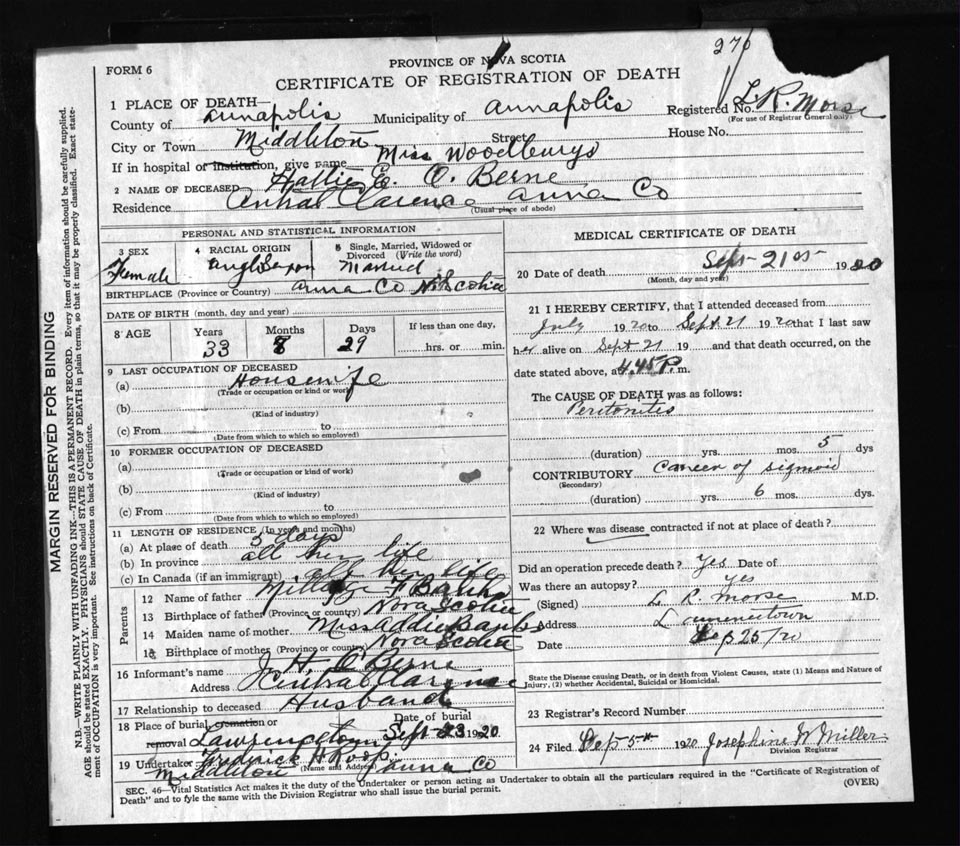 276
FORM 6
PROVINCE OF NOVA SCOTIA
CERTIFICATE OF REGISTRATION OF DEATH
1 PLACE OF DEATH—
County of Annapolis Municipality of Annapolis Registered No. L. R. Morse
(For use of Registrar General only)
City or Town Middleton Street House No.
If in hospital or institution, give name Miss Woodburys
2 NAME OF DECEASED Hattie E. O. Berne
Residence Clarence Anna Co
(Usual place of abode)
PERSONAL AND STATISTICAL INFORMATION
3 SEX 4 RACIAL ORIGIN 5 Single, Married, Widowed or Divorced (Write the word)
Female Anglo Saxon Married
BIRTHPLACE (Province or Country) Anna Co N. Scotia
DATE OF BIRTH (month, day and year)
8 AGE Years Months Days If less than one day,
33 8 29 hrs. or min.
9 LAST OCCUPATION OF DECEASED
(a) Housewife
(Trade or occupation or kind of work)
(b)
(Kind of industry)
(c) From to
(Date from which to which so employed)
10 FORMER OCCUPATION OF DECEASED
(a)
(Trade or occupation or kind of work)
(b)
(Kind of industry)
(c) From to
(Date from which to which so employed)
11 LENGTH OF RESIDENCE (In years and months)
(a) At place of death 5 days
(b) In province all her life
(c) In Canada (if an immigrant) all her life
Parents
12 Name of father F Banks
13 Birthplace of father (Province or country) Nova Scotia
14 Maiden name of mother Miss Addie Banks
15 Birthplace of mother (Province or country) Nova Scotia
16 Informant's name J. H. O'Berne
Address Central Clarence
17 Relationship to deceased Husband
18 Place of burial, cremation or removal Lawrencetown Date of burial Sept 23 1920
19 Undertaker Frederick H Roop
(Name and Address)
Middleton Anna Co
MEDICAL CERTIFICATE OF DEATH
20 Date of death Sept 21st 1920
(Month, day and year)
21 I HEREBY CERTIFY, that I attended deceased from
July 1920 to Sept. 21 1920 that I last saw
her alive on Sept 21 19 and that death occurred, on the
date stated above, at 4.45 P. m.
The CAUSE OF DEATH was as follows:
Peritonitis
(duration) yrs. mos. 5 dys
CONTRIBUTORY Cancer of sigmoid
(Secondary)
(duration) yrs. 6 mos. dys.
22 Where was disease contracted if not at place of death?
Did an operation precede death? Yes Date of
Was there an autopsy? yes
(Signed) L. R. Morse M.D.
Address Lawrencetown
Date Sep 25/20
State the Disease causing Death, or in death from Violent Causes, state (1) Means and Nature of
Injury, (2) whether Accidental, Suicidal or Homicidal.
23 Registrar's Record Number
24 Filed 5th 1920 Josephine W Miller
Division Registrar
SEC. 46—Vital Statistics Act makes it the duty of the Undertaker or person acting as Undertaker to obtain all the particulars required in the "Certificate of Registration of
Death" and to fyle the same with the Division Registrar who shall issue the burial permit.
(OVER)
MARGIN RESERVED FOR BINDING
N.B.—WRITE PLAINLY WITH UNFADING INK—THIS IS A PERMANENT RECORD. Every item of information should be carefully supplied.
AGE should be stated EXACTLY. PHYSICIANS should STATE CAUSE OF DEATH in plain terms, so that it may be properly classified. Exact statement of OCCUPATION is very important. See instructions on back of Certificate.